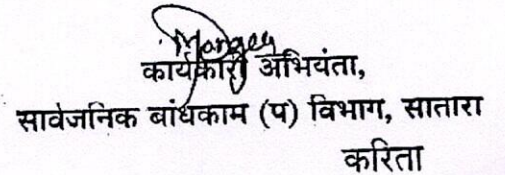 कार्यकारी अभियंता,
सार्वजनिक बांधकाम (प) विभाग, सातारा
करिता